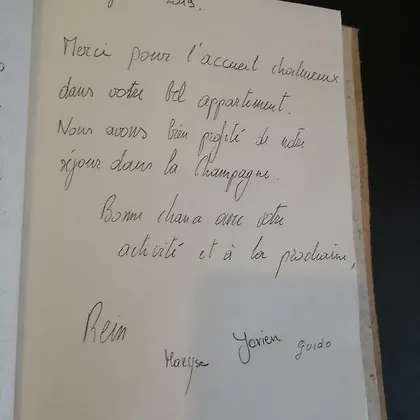 2019.
Merci pour l'accueil chaleureux
dans votre bel appartement.
Nous avons bien profité de notre
séjour dans la Champagne.
Bonne chance avec votre
activité et à la prochaine,
Rein
Maryse Jorien guido